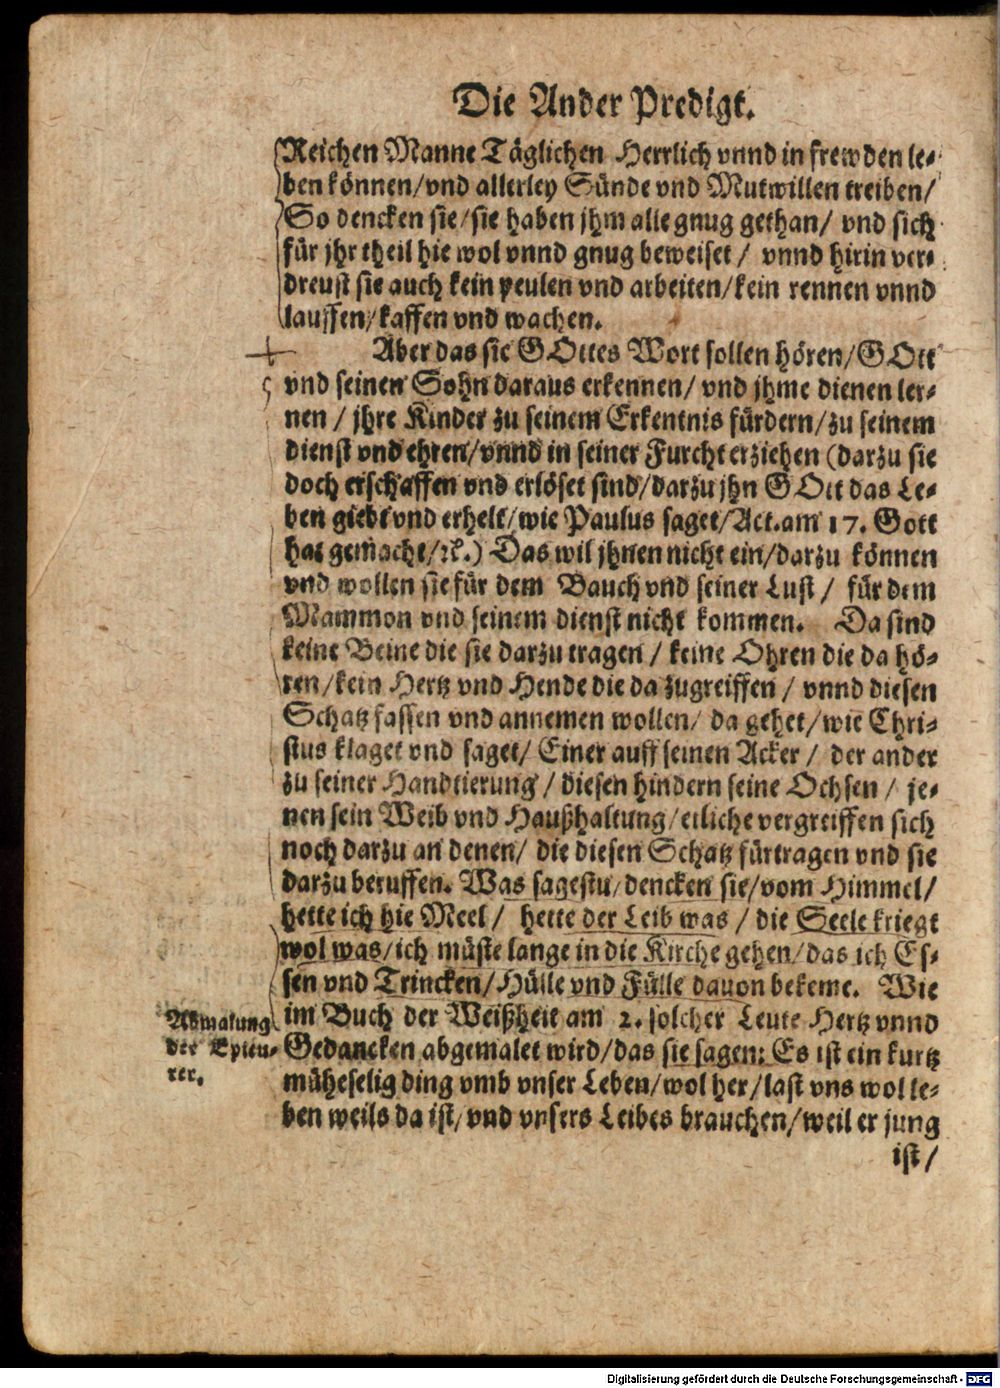 Die Ander Predigt.
Reichen Manne Täglichen Herrlich vnnd in frewden le-
ben können/vnd allerley Sünde vnd Mutwillen treiben/
So dencken sie/sie haben jhm alle gnug gethan/ vnd sich
für jhr theil hie wol vnnd gnug beweiset/ vnnd hirin ver-
dreust sie auch kein peulen vnd arbeiten/kein rennen vnnd
lauffen/kaffen vnd wachen.
Aber das sie GOttes Wort sollen hören/GOtt
vnd seinen Sohn daraus erkennen/ vnd jhme dienen ler-
nen/ jhre Kinder zu seinem Erkentnis fürdern/zu seinem
dienst vnd ehren/vnnd in seiner Furcht erziehen (darzu sie
doch erschaffen vnd erlöset sind/darzu jhn GOtt das Le-
ben giebt vnd erhelt/wie Paulus saget/Act.am 17. Gott
hat gemacht/ꝛc.) Das wil jhnen nicht ein/darzu können
vnd wollen sie für dem Bauch vnd seiner Lust/ für dem
Mammon vnd seinem dienst nicht kommen. Da sind
keine Beine die sie darzu tragen/ keine Ohren die da hö-
ren/kein Hertz vnd Hende die da zugreiffen/ vnnd diesen
Schatz fassen vnd annemen wollen/ da gehet/wie Chri-
stus klaget vnd saget/ Einer auff seinen Acker/ der ander
zu seiner Handtierung/ diesen hindern seine Ochsen/ je-
nen sein Weib vnd Haußhaltung/etliche vergreiffen sich
noch darzu an denen/ die diesen Schatz fürtragen vnd sie
darzu beruffen. Was sagestu/dencken sie/vom Himmel/
hette ich hie Meel/ hette der Leib was/ die Seele kriegt
wol was/ich müste lange in die Kirche gehen/das ich Es-
sen vnd Trincken/Hülle vnd Fülle dauon bekeme. Wie
im Buch der Weißheit am 2. solcher Leute Hertz vnnd
Gedancken abgemalet wird/das sie sagen: Es ist ein kurtz
müheselig ding vmb vnser Leben/wol her/last vns wol le-
ben weils da ist/vnd vnsers Leibes brauchen/weil er jung
ist/
Abmalung
der Epicu-
rer.
Digitalisierung gefördert durch die Deutsche Forschungsgemeinschaft - DFG